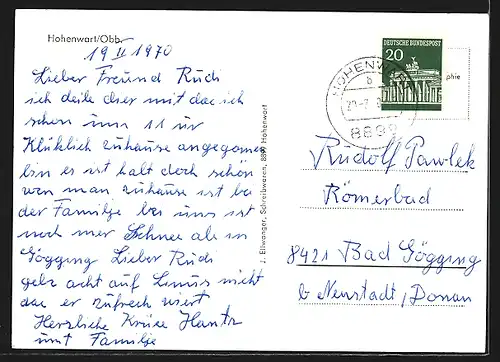 Hohenwart/Obb.
19 II 1970
Lieber Freund Rudi
ich deile dier mit das ich
schon um 11 ur
Klüklich zuhause angegomen
bin es ist halt doch schön
wen man zuhause ist bei
der Familje bei uns ist
noch mer Schnee als in
Gögging Lieber Rudi
geb acht auf Linus nicht
das er zufrech wiert
Herzliche Krüse Hantz
und Familje
. Ellwanger, Schreibwaren, 8898 Hohenwart
HOHENWART
8899
20
DEUTSCHE BUNDESPOST
phie
Rudolf Pawlek
Römerbad
8421 Bad Gögging
b Neustadt, Donau